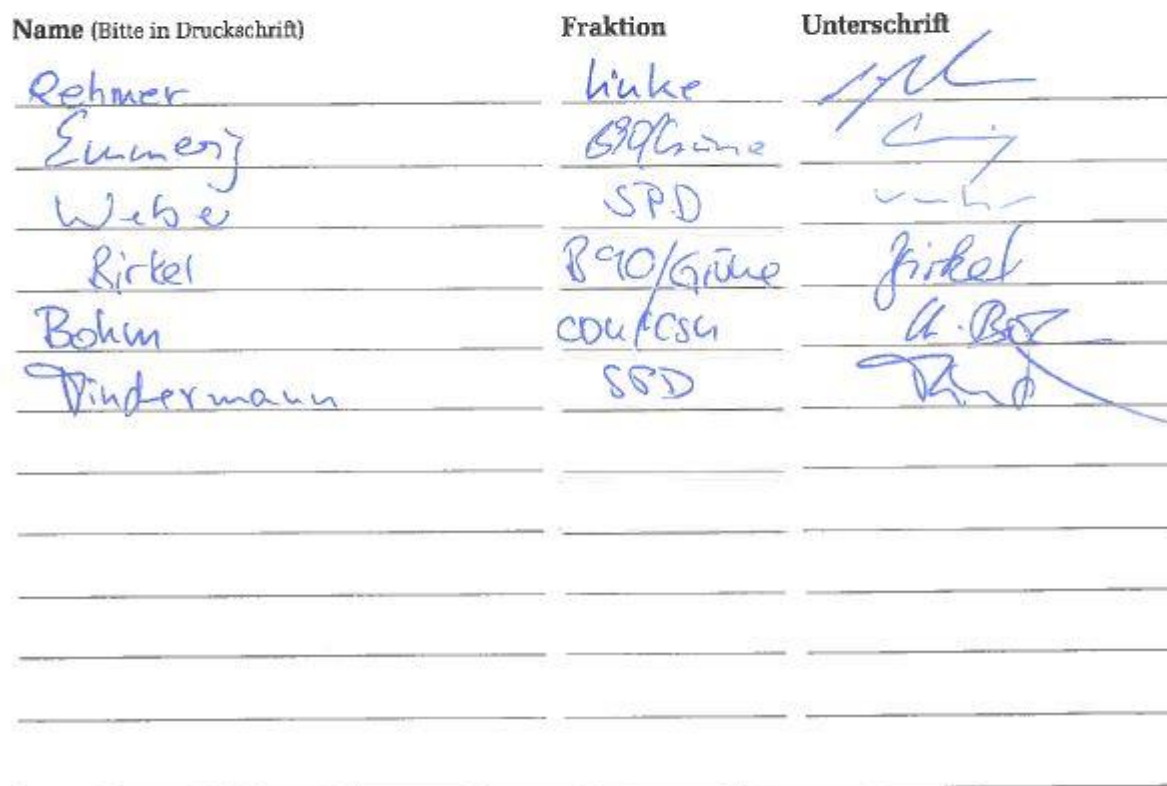 Name (Bitte in Druckschrift) Fraktion Unterschrift
Rehmer Linke
Emmerij B90/Grüne
Weber SPD
Birkel B90/Grüne Birkel
Bohm CDU/CSU U. Boh
Tindermann SPD Tind